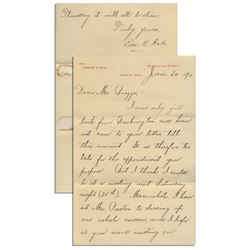 Thursday it will all be clear
Truly yours,
Edw. E. Hale
Jan. 20 90
Dear Mr.
I am only just
back from Washington and have
not come to your letter till
this moment. It is therefore too
late for the appointment you
propose. But I think I could
be at a meeting next Saturday
night (25th). Meanwhile I have
at Mr. to draw up
our whole and I hope
at your meeting on